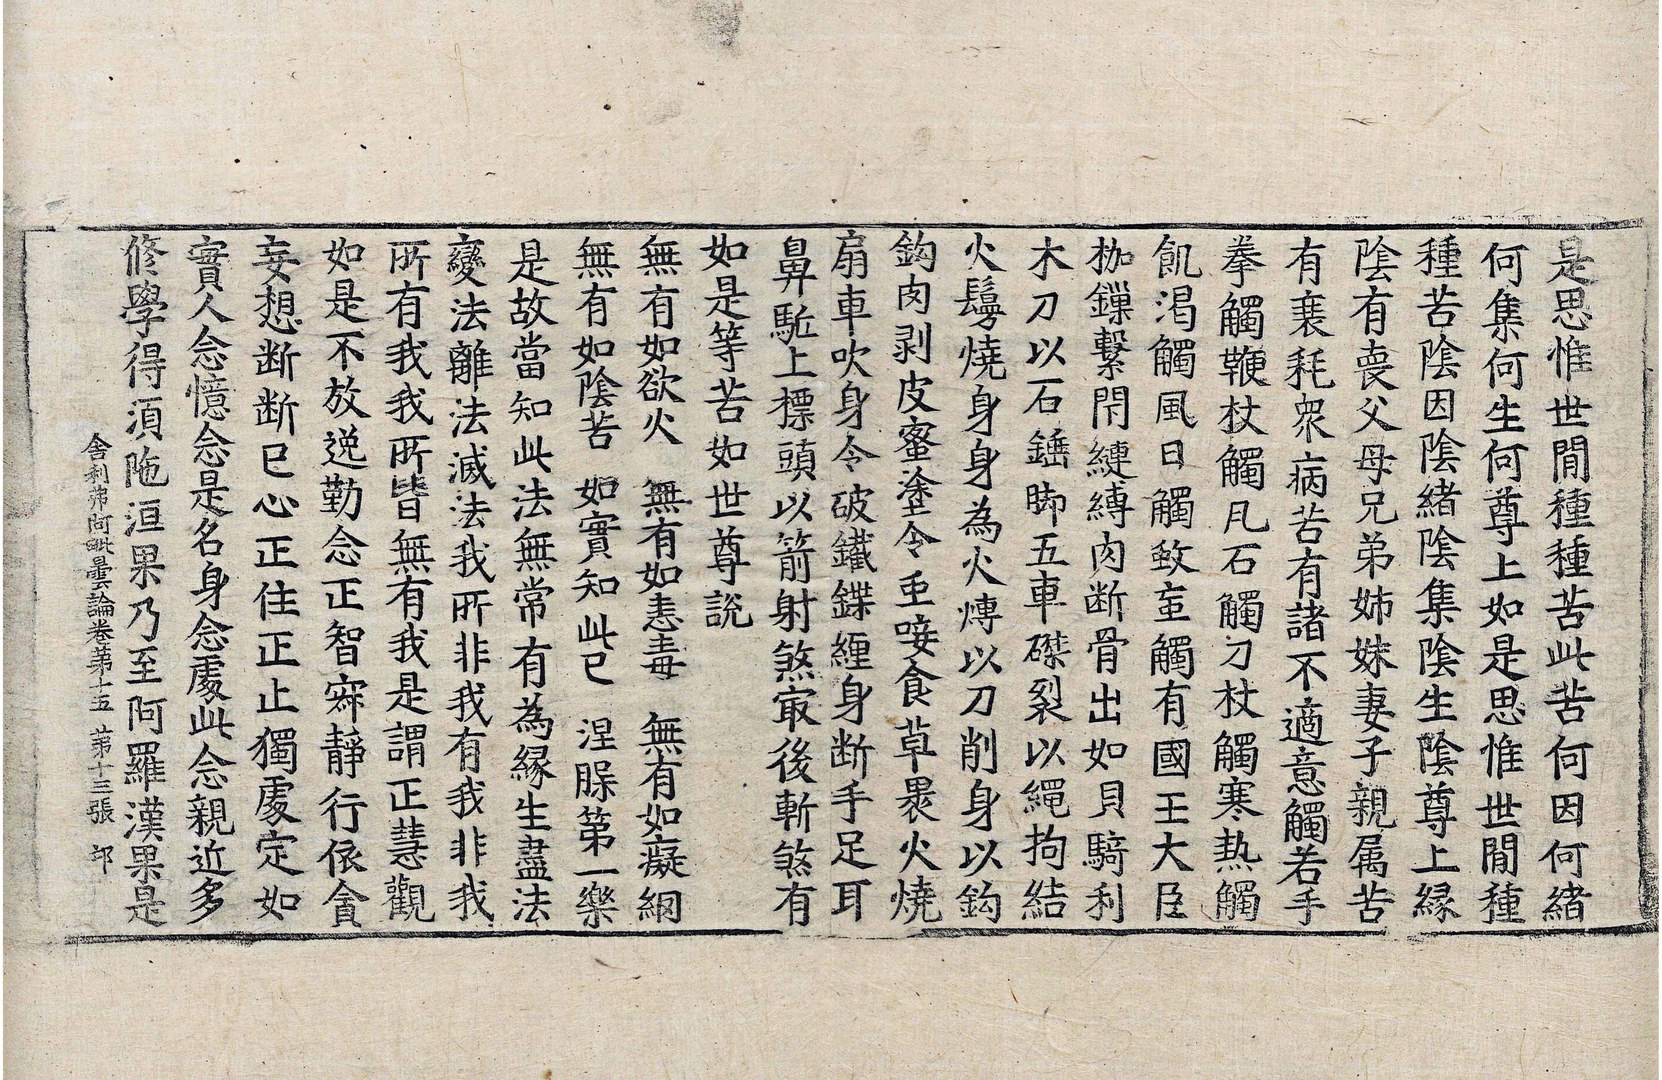 是思惟世間種種苦此苦何因何緒
何集何生何尊上如是思惟世間種
種苦陰因陰緒陰集陰生陰尊上縁
陰有喪父母兄弟姉妹妻子親属苦
有衰耗衆病苦有諸不適意觸若手
拳觸鞭杖觸凡石觸刀杖觸寒熱觸
飢渴觸風日觸蚊䖟觸有國王大臣
枷鏁繫閇縺縛肉断骨出如貝騎利
木刀以石錘脚五車磔裂以繩拘結
火鬘燒身身為火煿以刀削身以鈎
鈎肉剥皮蜜塗令䖝唼食草褁火燒
扇車吹身令破鐵鍱纒身断手足耳
鼻駈上標頭以箭射煞㝡後斬煞有
如是等苦如世尊說
無有如欲火　無有如恚毒　無有如癡網
無有如陰苦　如實知此已　涅槃第一樂
是故當知此法無常有為縁生盡法
變法離法滅法我所非我有我非我
所有我我所皆無有我是謂正慧觀
如是不放逸勤念正智寂靜行依貪
妄想断断已心正住正止獨處定如
實人念憶念是名身念處此念親近多
修學得湏陁洹果乃至阿羅漢果是
舍利弗阿毗曇論卷第十五　第十三張　邙